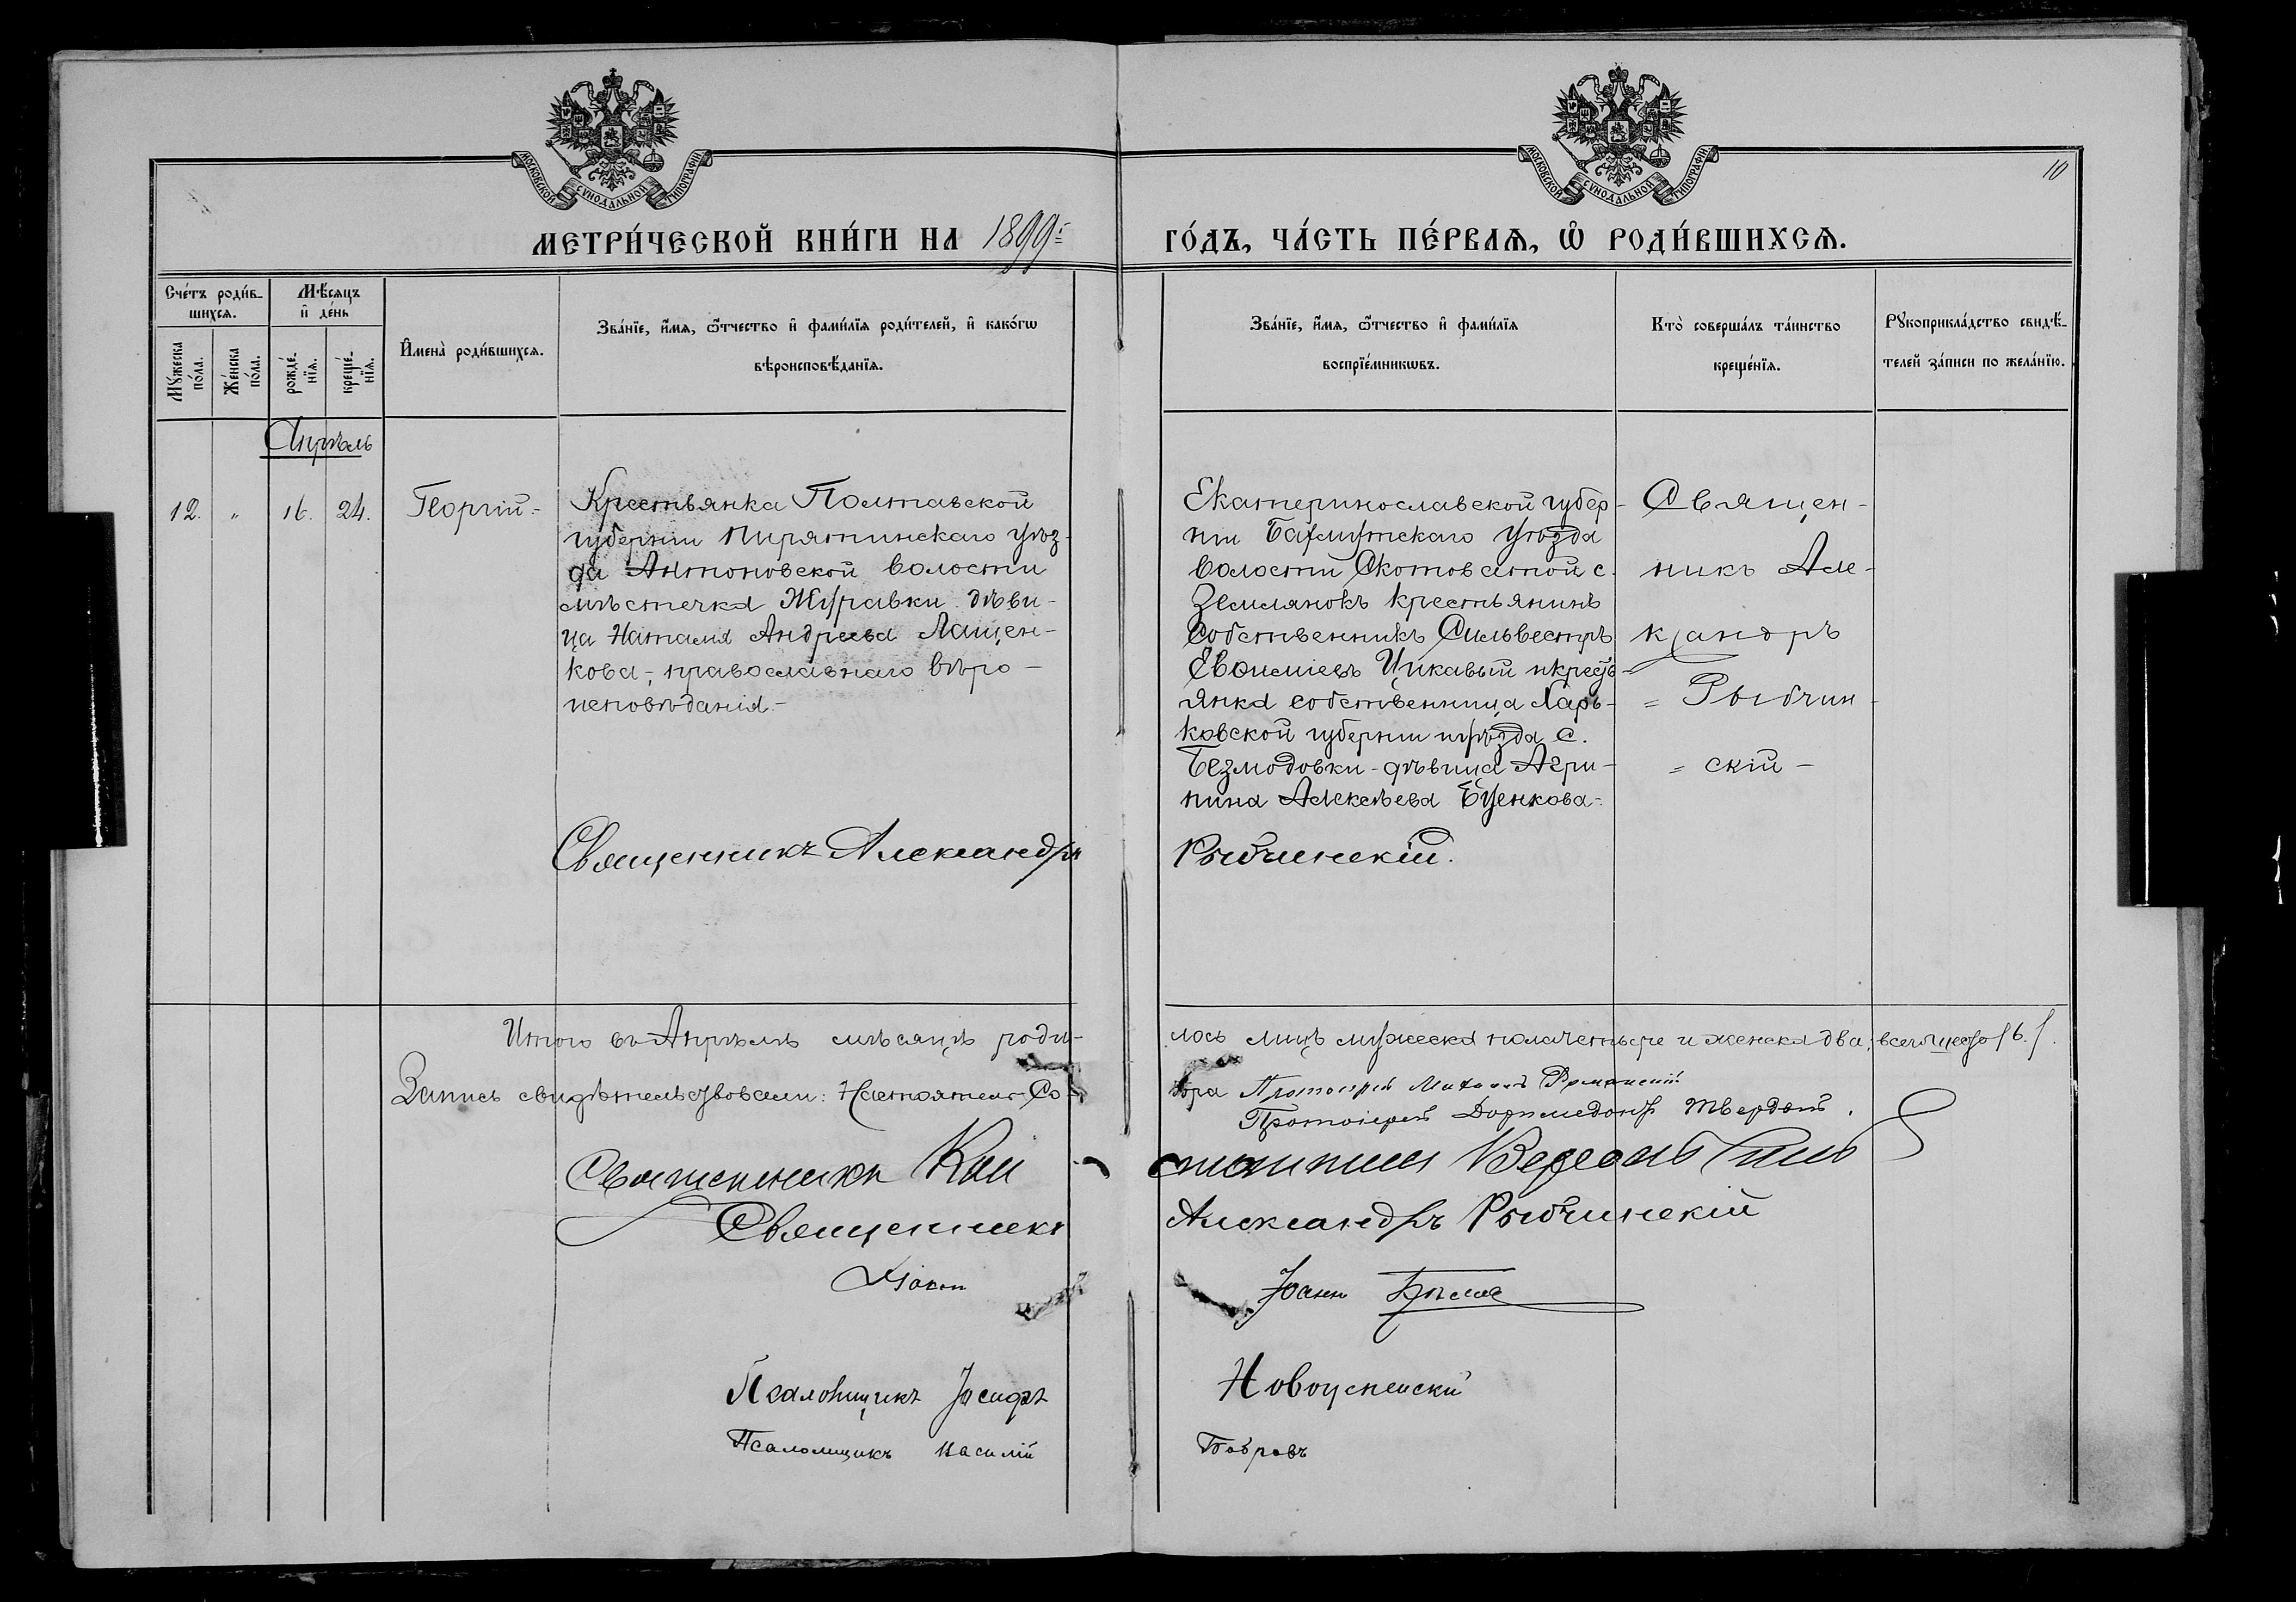 МОСКОВСКОЙ СѴНОДАЛЬНОЙ ТИПОГРАФІИ
МОСКОВСКОЙ СѴНОДАЛЬНОЙ ТИПОГРАФІИ
10
МЕТРИ́ЧЕСКОЙ КНИ́ГИ НА 1899й
ГО́ДЪ, ЧА́СТЬ ПЕ́РВАѦ, Ѡ҆ РОДИ́ВШИХСѦ.
Сче́тъ роди́в-
шихсѧ.
Мꙋ́жеска
по́ла.
Же́нска
по́ла.
Мѣ́сѧцъ
и҆ де́нь
рожде́-
нїѧ.
креще́-
нїѧ.
И҆мена̀ роди́вшихсѧ.
Зва́нїе, и҆́мѧ, ѻ҆́тчество и҆ фами́лїѧ роди́телей, и҆ како́гѡ
вѣроисповѣ́данїѧ.
Зва́нїе, и҆́мѧ, ѻ҆́тчество и҆ фами́лїѧ
воспрїе́мникѡвъ.
Кто̀ соверша́лъ та́инство
креще́нїѧ.
Рꙋкоприкла́дство свидѣ́-
телей за́писи по жела́нїю.
Апрѣль
12. " 16. 24. Георгій.-
Крестьянка Полтавской
губерніи Пирятинскаго уѣз-
да Антоновской волости
мѣстечка Журавки дѣви-
ца Наталія Андреева Лащен-
кова,- православнаго вѣро-
исповѣданія.-
Екатеринославской губер-
ніи Бахмутскаго уѣзда
волости Скотоватой с.
Землянокъ крестьянинъ
собственникъ Сильвестръ
Евѳиміевъ Цикавый и крест-
янка собственница Харь-
ковской губерніи и уѣзда с.
Безмодовки-дѣвица Агри-
пина Алексѣева Буценкова.-
Священ-
никъ Але-
ксандръ
= Рыбчин-
= скій-
Священникъ Александръ Рыбчинскій.
Итого въ Апрѣлѣ мѣсяцѣ роди- лось лицъ мужеска пола четыре и женска два, всего шесть /6./.
Запись свидѣтельствовали: Настоятель Со- бора Протоіерей Михаилъ Романскій
Протоіерей Доримедонтъ Твердой.
Священникъ
Священникъ Александръ Рыбчинскій
Діакон Іоанн
Псаломщикъ Іосифъ Новоуспенскій
Псаломщикъ Василій Бобровъ